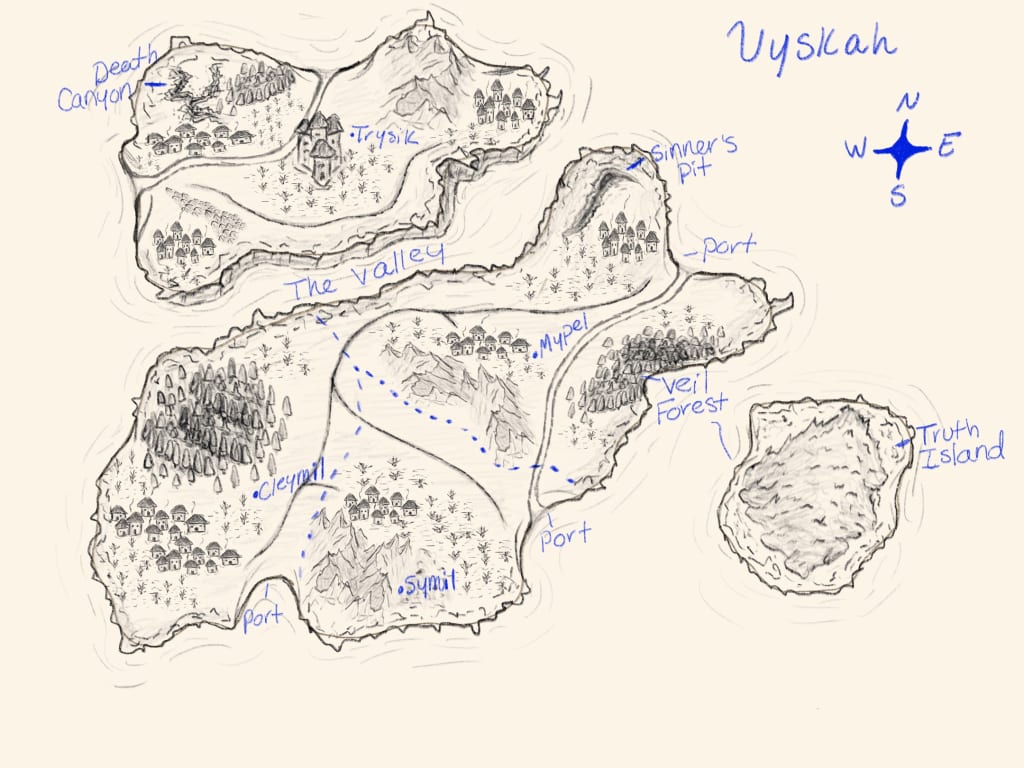 Vyskah
Death
Canyon
Trysik
N
W E
S
Sinner's
Pit
Port
The Valley
Mypel
Veil
Forest
Truth
Island
Cleymil
Port
Symil
Port